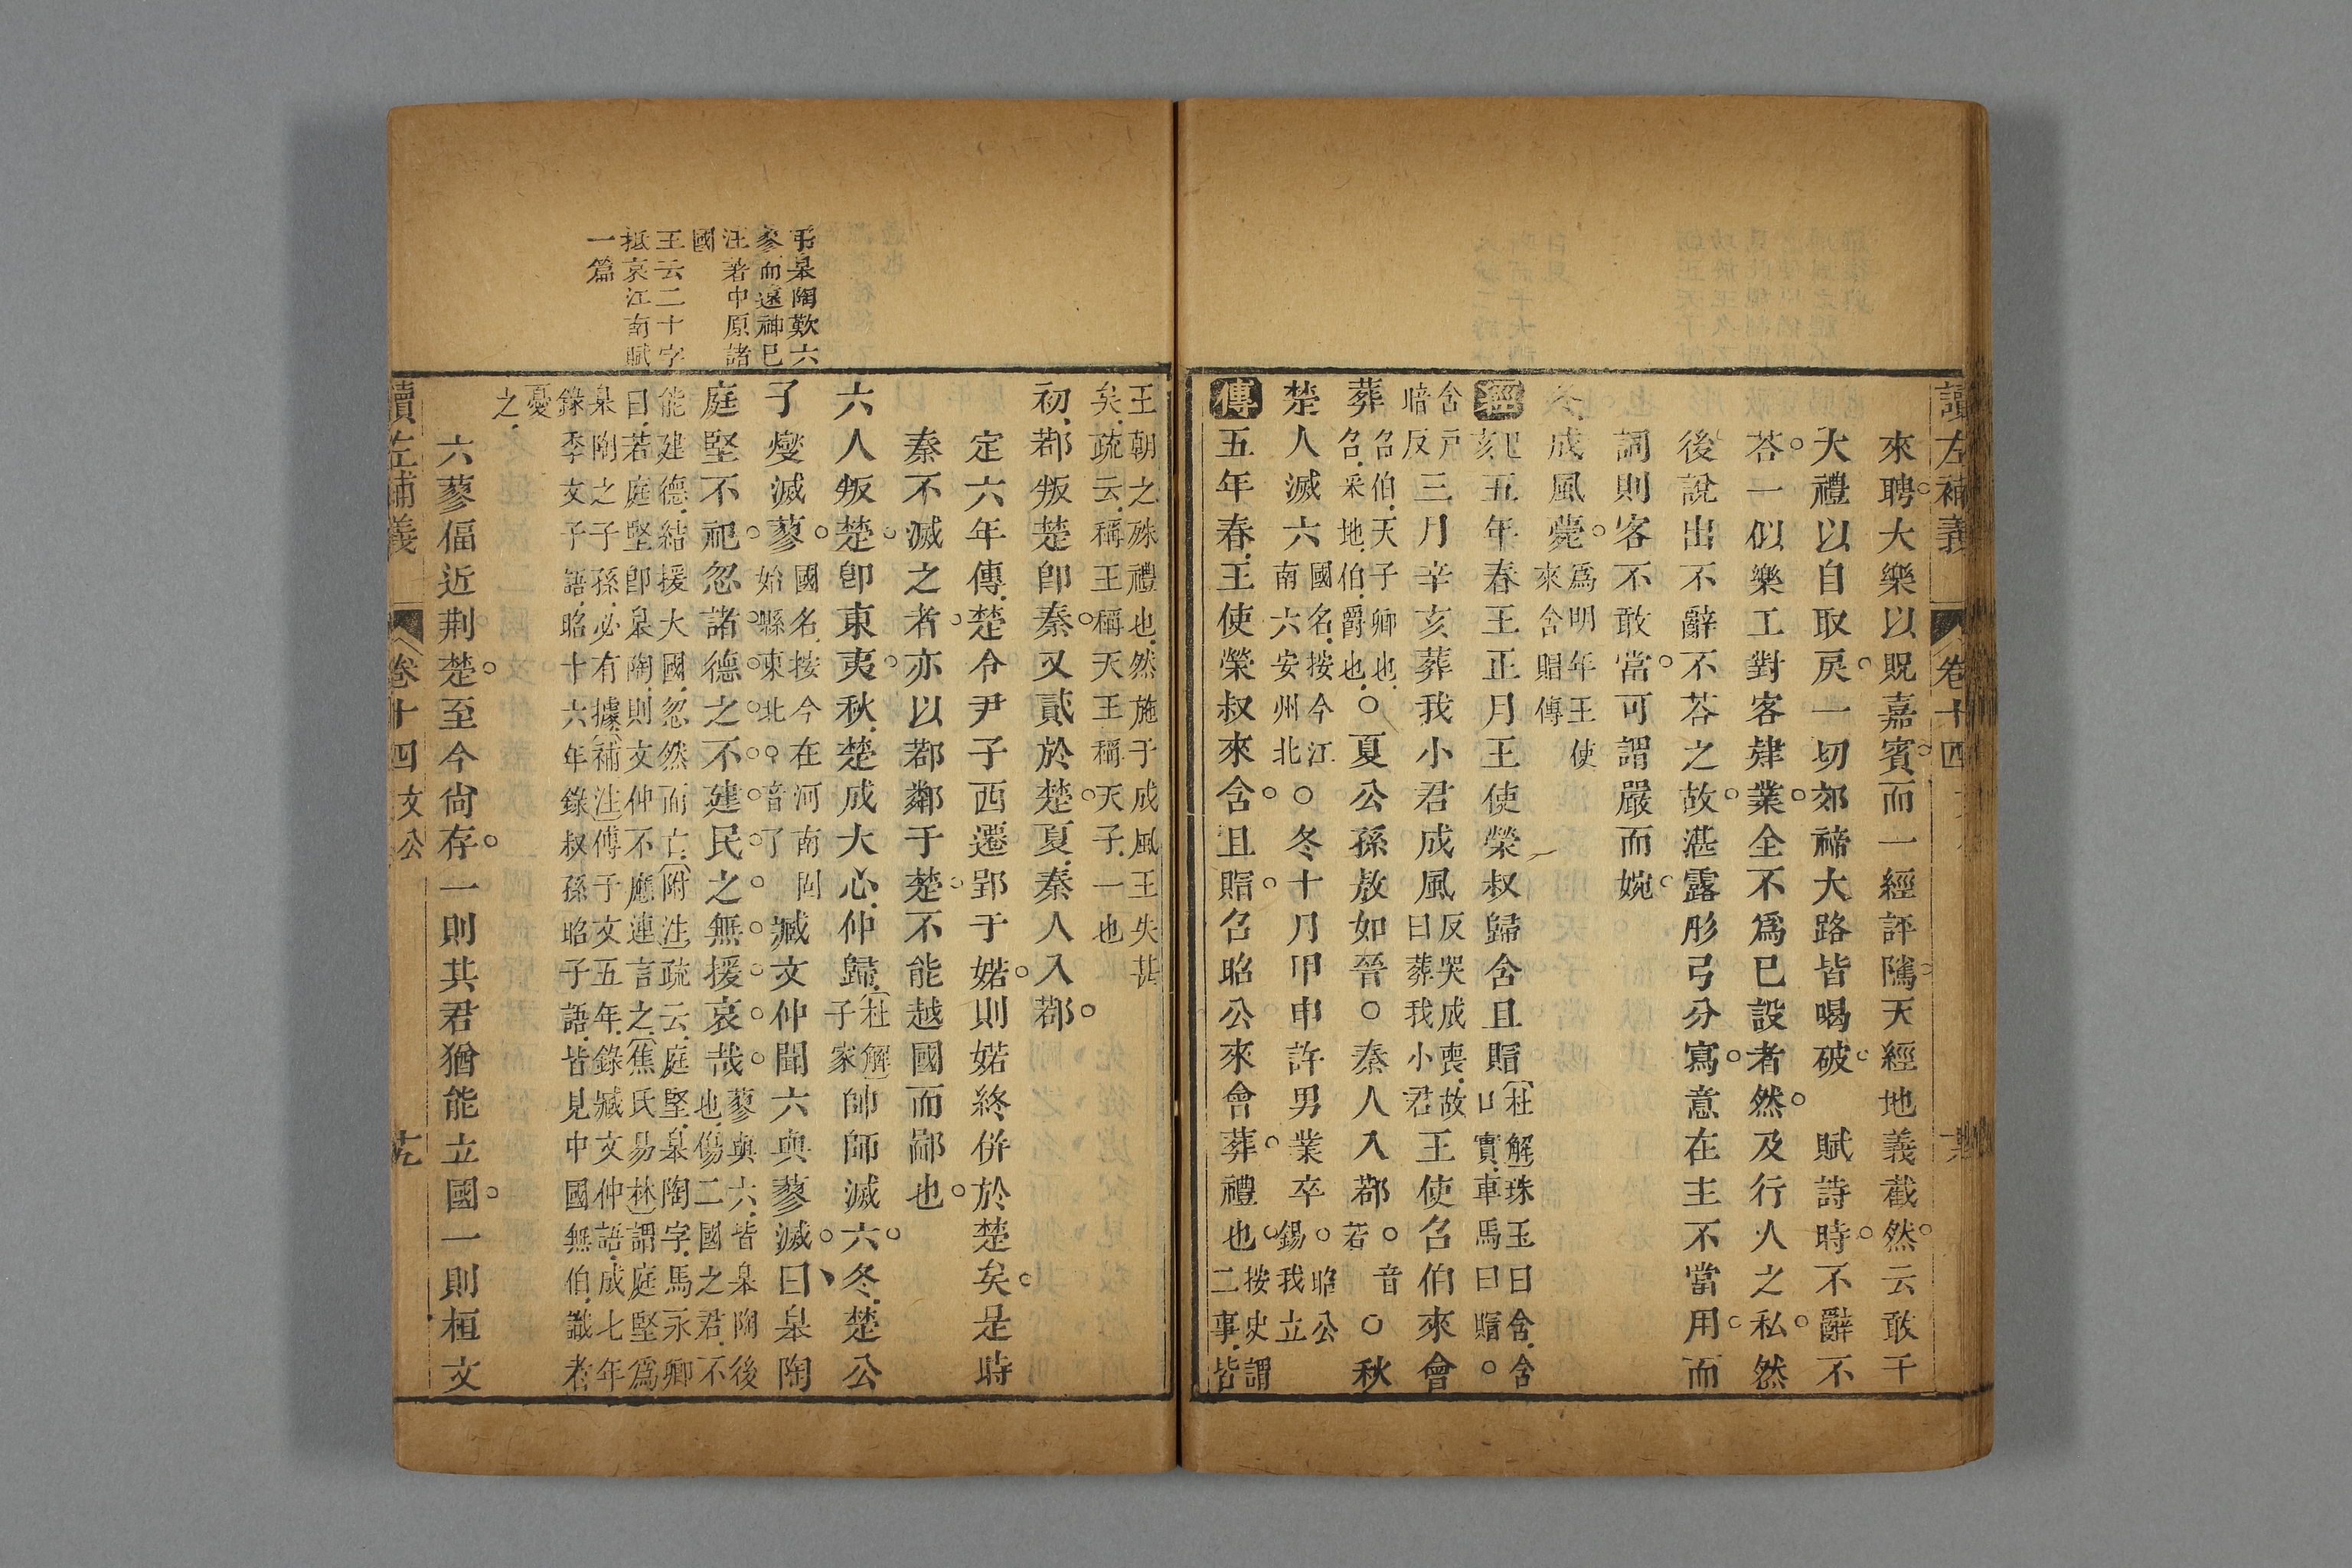 讀左補義 卷十四
來聘大樂以貺嘉賓而一經評隲天經地義截然云敢干
大禮以自取戾一切郊禘大路皆喝破 賦詩時不辭不
荅一似樂工對客肄業全不爲已設者然及行人之私然
後說出不辭不荅之故湛露彤弓分寫意在主不當用而
詞則客不敢當可謂嚴而婉
冬成風薨爲明年王使來含賵傳
經五年春王正月王使榮叔歸含且賵杜解珠玉曰含含口實車馬曰賵○
含戶暗反三月辛亥葬我小君成風反哭成喪故曰葬我小君王使召伯來會
葬召伯天子卿也召采地伯爵也○夏公孫敖如晉○秦人入鄀○音若○秋
楚人滅六國名按今江南六安州北○冬十月甲申許男業卒○昭公錫我立
傳五年春王使榮叔來含且賵召昭公來會葬禮也按史謂二事皆
王朝之殊禮也然施于成風王失甚矣疏云稱王稱天王稱天子一也
初鄀叛楚卽秦又貳於楚夏秦人入鄀
定六年傳楚令尹子西遷郢于鄀則鄀終併於楚矣是時
秦不滅之者亦以鄀鄰于楚不能越國而鄙也
六人叛楚卽東夷秋楚成大心仲歸杜解子家帥師滅六冬楚公
子燮滅蓼國名按今在河南固始縣東北○音了臧文仲聞六與蓼滅曰臯陶
庭堅不祀忽諸德之不建民之無援哀哉蓼與六皆臯陶後也傷二國之君不
能建德結援大國忽然而亡附注疏云庭堅臯陶字馬永卿
曰若庭堅卽臯陶則文仲不應連言之焦氏易林謂庭堅爲
臯陶之子孫必有據補注傅子文五年錄臧文仲語成七年
錄季文子語昭十六年錄叔孫昭子語皆見中國無伯識者
憂之
六蓼偪近荆楚至今尙存一則其君猶能立國一則桓文
讀左補義 卷十四 文公
弔臯陶歎六
蓼而遠神已
注著中原諸
國
王云二十字
抵哀江南賦
一篇